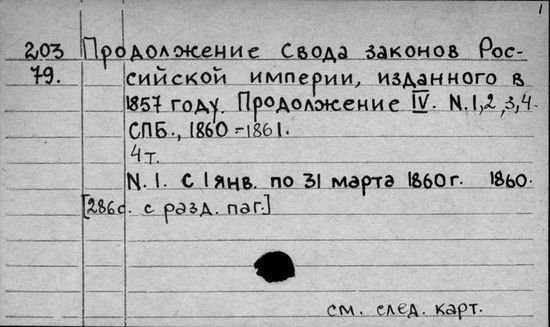 1
203 Продолжение Свода законов Рос-
79. сийской империи, изданного в
1857 году. Продолжение IV. N.1,2,3,4.
СПБ., 1860-1861.
4т.
N.1. С 1 янв. по 31 марта 1860г. 1860.
[286с. с разд. паг.]
см. след. карт.